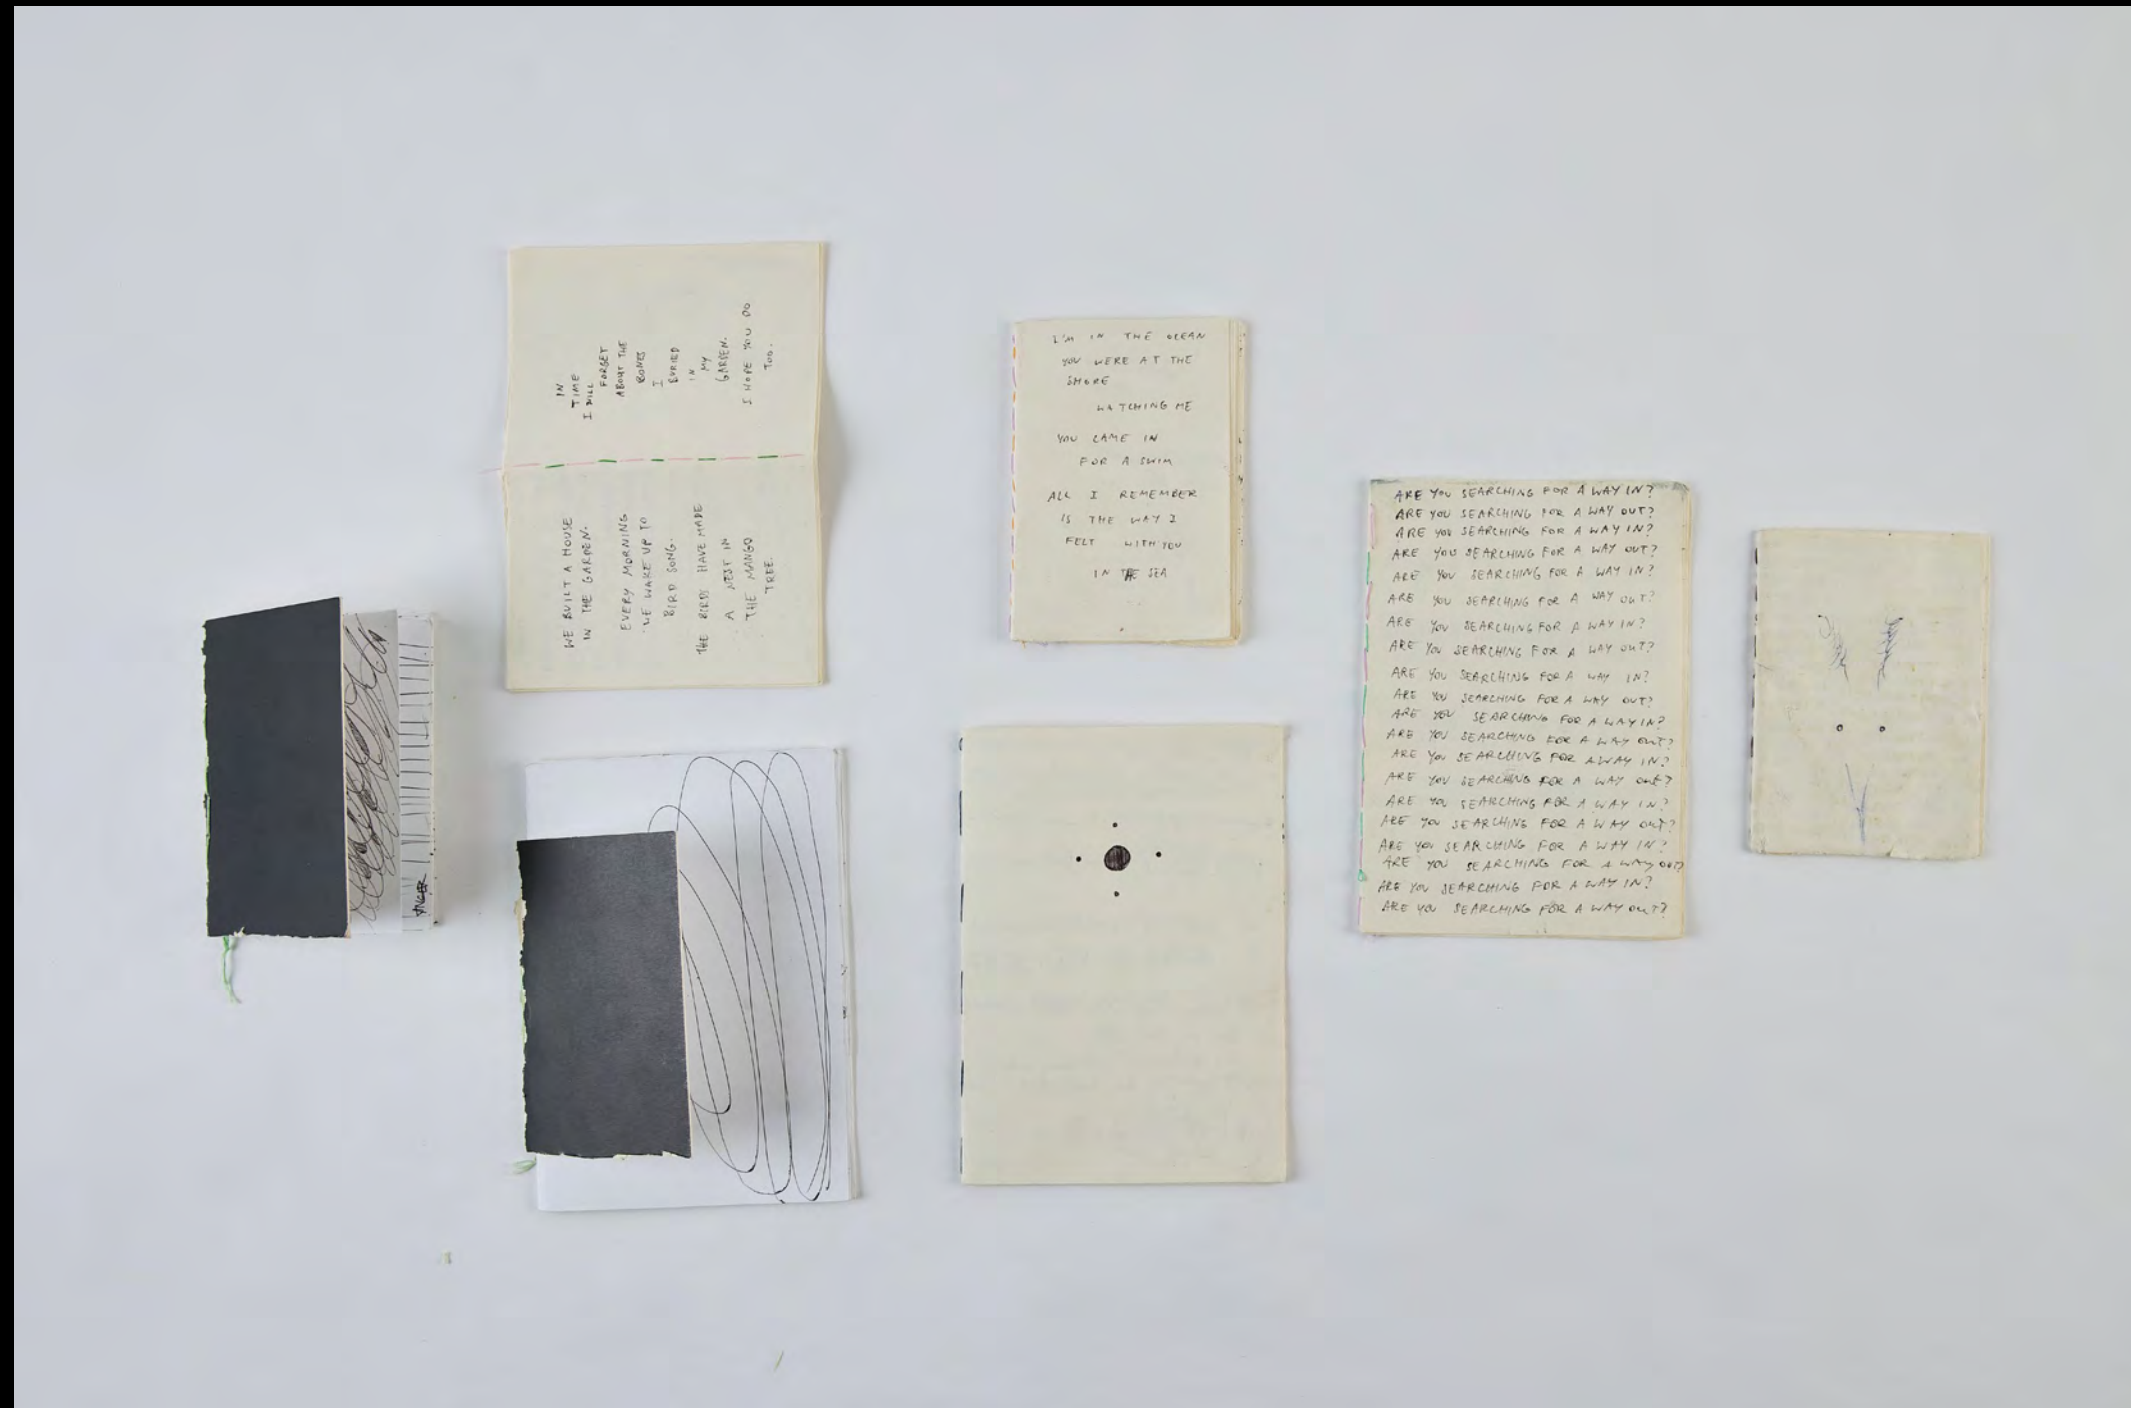 ANGER
WE BUILT A HOUSE
IN THE GARDEN.
EVERY MORNING
WE WAKE UP TO
BIRD SONG.
THE BIRDS HAVE MADE
A NEST IN
THE MANGO
TREE.
IN
TIME
I WILL
FORGET
ABOUT THE
BONES
I
BURIED
IN
MY
GARDEN.
I HOPE YOU DO
TOO.
I'M IN THE OCEAN
YOU WERE AT THE
SHORE
WATCHING ME
YOU CAME IN
FOR A SWIM
ALL I REMEMBER
IS THE WAY I
FELT WITH YOU
IN THE SEA
ARE YOU SEARCHING FOR A WAY IN?
ARE YOU SEARCHING FOR A WAY OUT?
ARE YOU SEARCHING FOR A WAY IN?
ARE YOU SEARCHING FOR A WAY OUT?
ARE YOU SEARCHING FOR A WAY IN?
ARE YOU SEARCHING FOR A WAY OUT?
ARE YOU SEARCHING FOR A WAY IN?
ARE YOU SEARCHING FOR A WAY OUT?
ARE YOU SEARCHING FOR A WAY IN?
ARE YOU SEARCHING FOR A WAY OUT?
ARE YOU SEARCHING FOR A WAY IN?
ARE YOU SEARCHING FOR A WAY OUT?
ARE YOU SEARCHING FOR A WAY IN?
ARE YOU SEARCHING FOR A WAY OUT?
ARE YOU SEARCHING FOR A WAY IN?
ARE YOU SEARCHING FOR A WAY OUT?
ARE YOU SEARCHING FOR A WAY IN?
ARE YOU SEARCHING FOR A WAY OUT?
ARE YOU SEARCHING FOR A WAY IN?
ARE YOU SEARCHING FOR A WAY OUT?